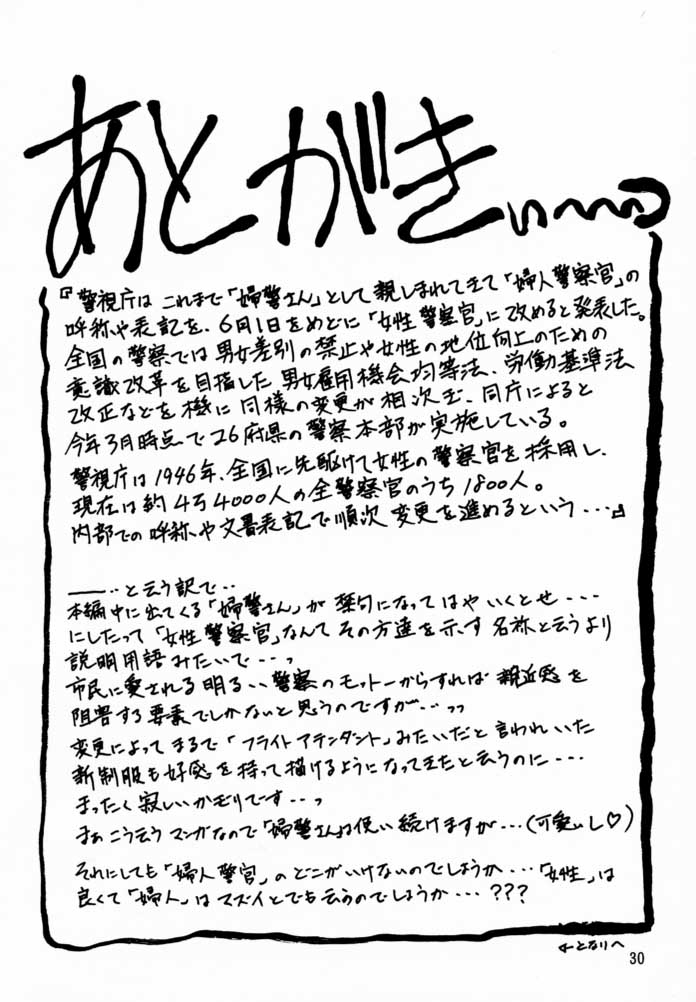 あとがきぃ〜〜ぃっ
『警視庁は これまで「婦警さん」として親しまれてきて「婦人警察官」の
呼称や表記を、6月1日をめどに「女性警察官」に改めると発表した。
全国の警察では男女差別の禁止や女性の地位向上のための
意識改革を目指した男女雇用機会均等法、労働基準法
改正などを機に同様の変更が相次ぎ、同庁によると
今年3月時点で26府県の警察本部が実施している。
警視庁は1946年、全国に先駆けて女性の警察官を採用し、
現在は約4万4000人の全警察官のうち1800人。
内部での呼称や文書表記で順次変更を進めるという…』
――‥と云う訳で‥
本編中に出てくる「婦警さん」が禁句になってはやいくとせ…
にしたって「女性警察官」なんてその方達を示す名称と云うより
説明用語みたいで…っ
市民に愛される明るい警察のモットーからすれば親近感を
阻害する要素でしかないと思うのですが…っっ
変更によってまるで「フライトアテンダント」みたいだと言われいた
新制服も好感を持って描けるようになってきたと云うのに…
まったく寂しいかギリです…っ
まぁこう云うマンガなので「婦警さん」は使い続けますが…(可愛いし♡)
それにしても「婦人警官」のどこがいけないのでしょうか…「女性」は
良くて「婦人」はマズイとでも云うのでしょうか…???
←となりへ
30